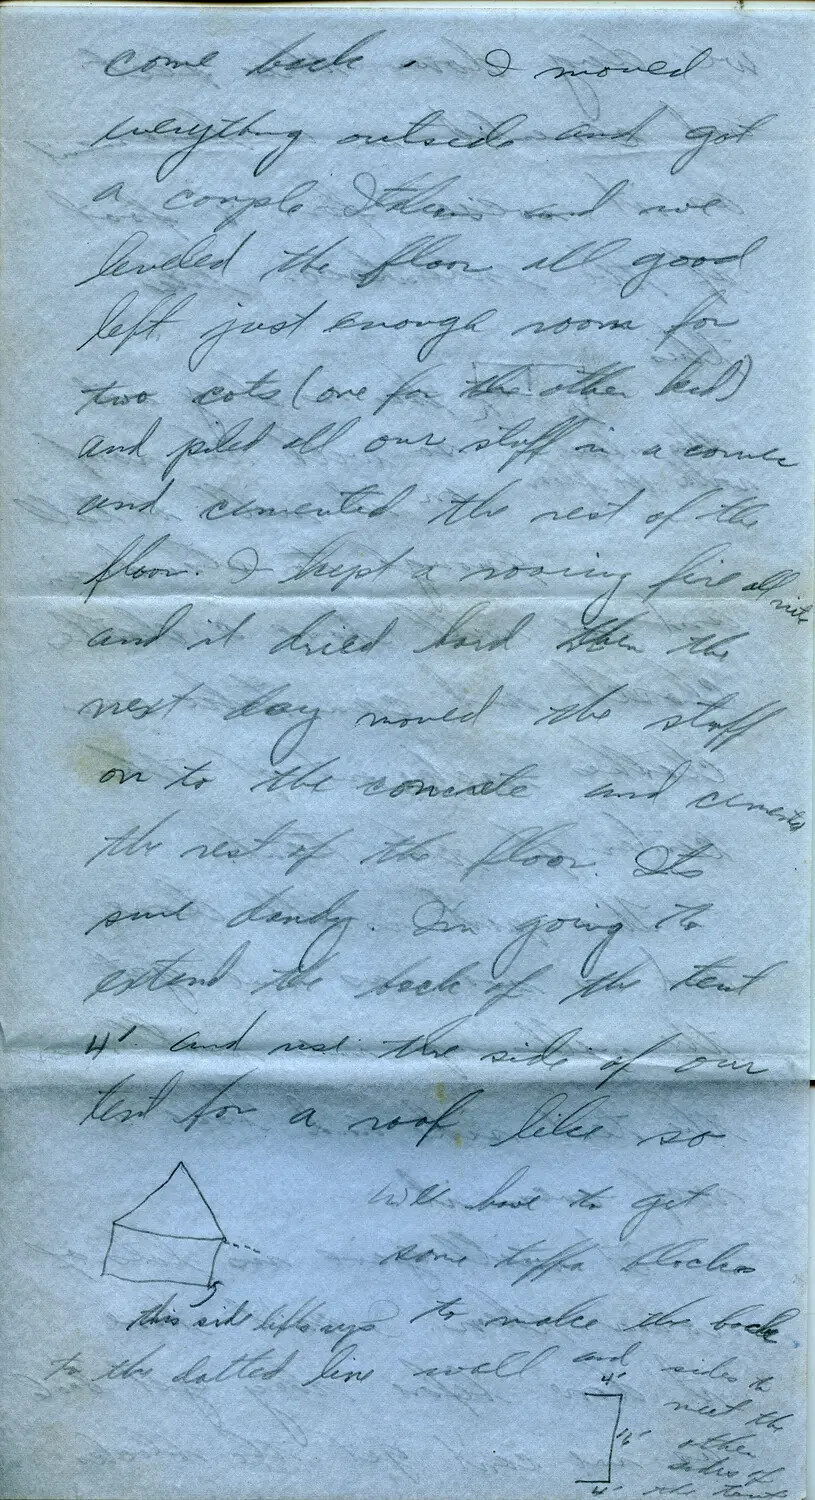 come back. I moved
everything outside and got
a couple Italians and we
leveled the floor all good
left just enough room for
two cots (one for the other bed)
and piled all our stuff in a corner
and cemented the rest of the
floor. I kept a roaring fire all nite
and it dried hard then the
next day moved the stuff
on to the concrete and cemented
the rest of the floor. Its
sure dandy. I'm going to
extend the back of the tent
4' and use the side of our
tent for a roof like so
will have to get
some tuffa blocks
to make the back
wall and sides to
meet the
other
sides of
the tent
this side lifts up
to the dotted line
4'
16'
4'